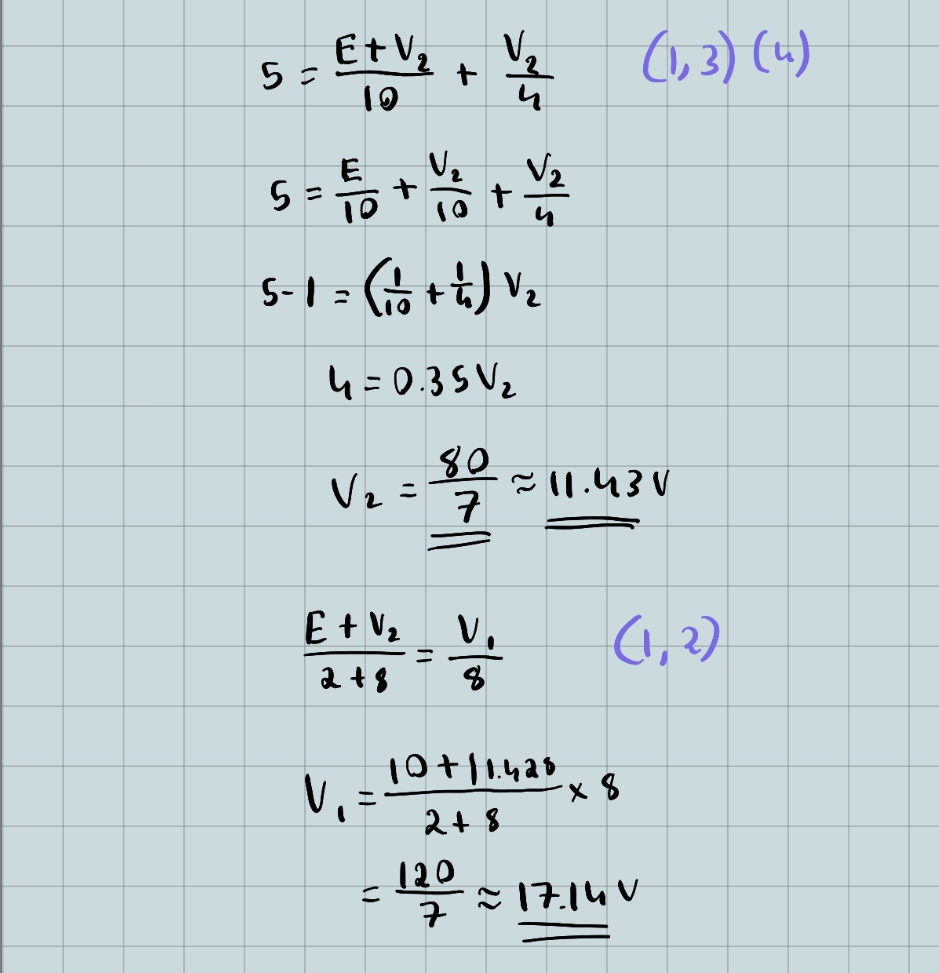 5 = (E + V₂)/10 + V₂/4 (1,3) (4)
5 = E/10 + V₂/10 + V₂/4
5 - 1 = (1/10 + 1/4) V₂
4 = 0.35 V₂
V₂ = 80/7 ≈ 11.43 V
(E + V₂)/(2 + 8) = V₁/8 (1,2)
V₁ = (10 + 11.428)/(2 + 8) × 8
= 120/7 ≈ 17.14 V